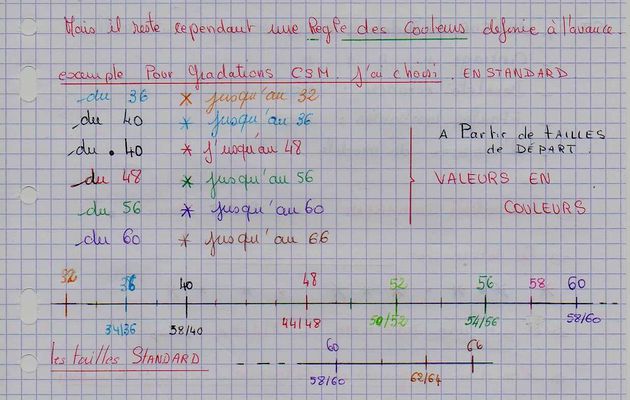 Mais il reste cependant une Règle des Couleurs définie à l'avance.
exemple Pour Gradations CSM. j'ai choisi. EN STANDARD
du 36 * jusqu'au 32
du 40 * jusqu'au 36
du . 40 * j'usqu'au 48
du 48 * jusqu'au 56
du 56 * jusqu'au 60
du 60 * jusqu'au 66
A Partir de TAILLES
de DÉPART.
VALEURS EN
COULEURS
32 36 40 48 52 56 58 60
34/36 38/40 44/48 50/52 54/56 58/60
les tailles STANDARD
60 66
58/60 62/64